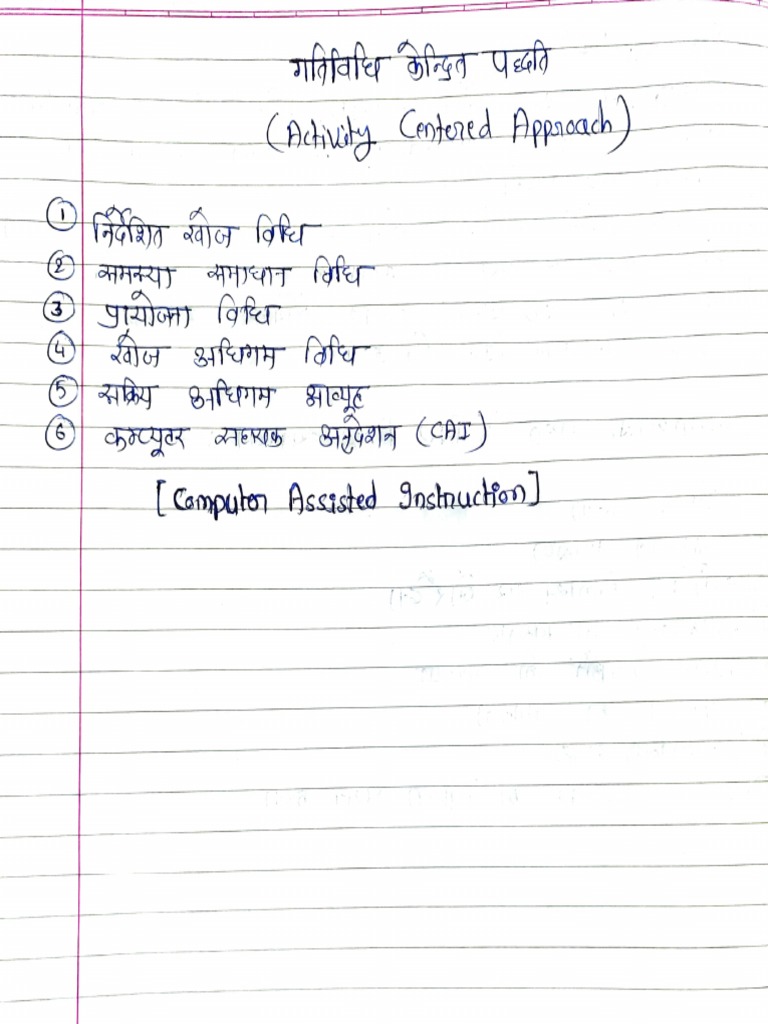 गतिविधि केन्द्रित पद्धति
(Activity Centered Approach)
① निर्देशित खोज विधि
② समस्या समाधान विधि
③ प्रायोजना विधि
④ खोज अधिगम विधि
⑤ सक्रिय अधिगम आव्यूह
⑥ कम्प्यूटर सहायक अनुदेशन (CAI)
[Computer Assisted Instruction]